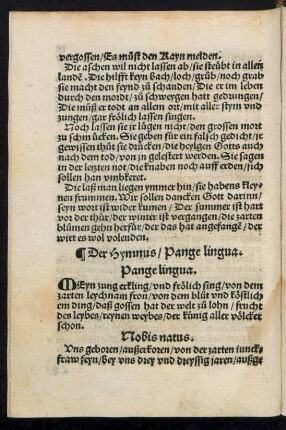 vergossen/Es müst den Kayn melden.
Die aschen wil nicht lassen ab/sie steübt in allen
landẽ. Die hilfft keyn bach/loch/grüb/noch grab
sie macht den feynd zu schanden/Die er im leben
durch den mordt/zu schweygen hatt gedrungen/
Die müß er todt an allem ort/mit aller stym vnd
zungen/gar frölich lassen singen.
Noch lassen sie jr lügen nicht/den grossen mort
zu schmücken. Sie geben für ein falsch gedicht/jr
gewissen thůt sie drücken/die heylgen Gotts auch
nach dem tod/von jn gelestert werden. Sie sagen
in der letzten not/die knaben noch auff erden/sich
sollen han vmbkeret.
Die laß man liegen ymmer hin/sie habens kley-
nen frummen. Wir sollen dancken Gott darinn/
seyn wort ist wider kumen/Der summer ist hart
vor der thür/der winter ist vergangen/die zarten
blůmen gehn herfür/der das hat angefangẽ/der
wirt es wol volenden.
¶ Der Hymnus/Pange lingua.
Pange lingua.
MEyn zung erkling/vnd frölich sing/von dem
zarten leychnam fron/von dem blůt vnd köstlich
em ding/daß gossen hat der welt zu lohn/frucht
des leybes/reynen weybes/der künig aller völcker
schon.
Nobis natus.
Vns geboren/außerkoren/von der zarten iunck-
fraw feyn/bey vns drey vnd dreyssig jaren/außge